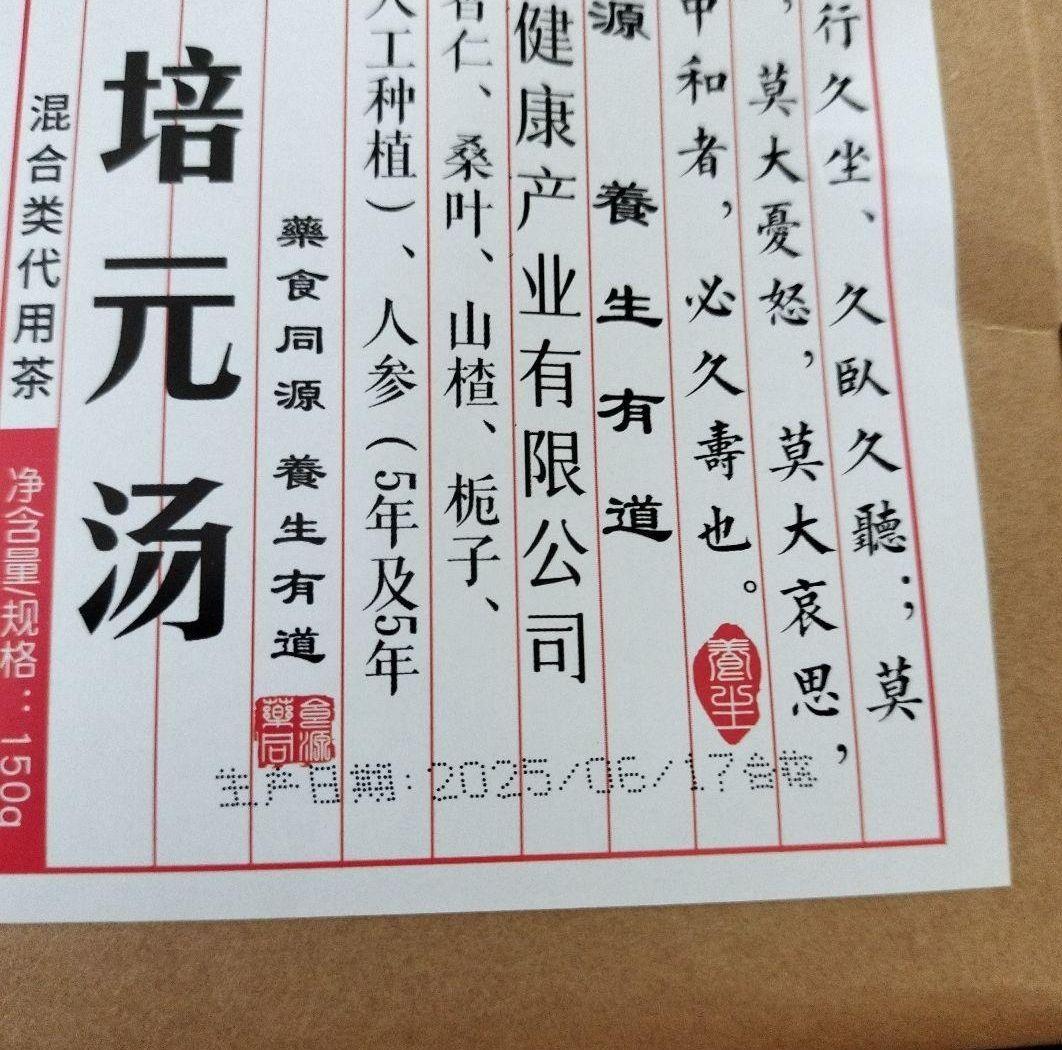 行久坐、久臥久聽；莫
，莫大憂怒，莫大哀思，
中和者，必久壽也。
養生
源 養生有道
健康产业有限公司
智仁、桑叶、山楂、栀子、
人工种植）、人参（5年及5年
藥食同源 養生有道
藥同食源
培元汤
混合类代用茶
净含量/规格：150g
生产日期:2025/06/17合格